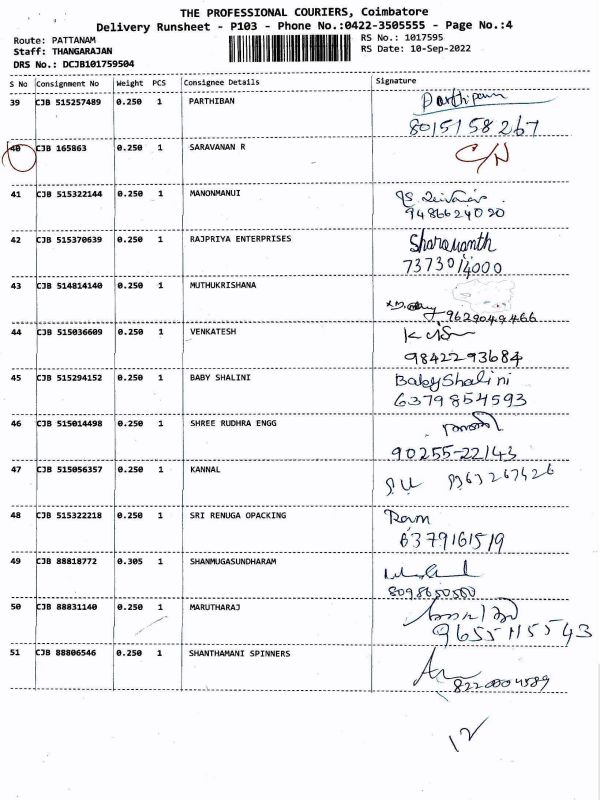 THE PROFESSIONAL COURIERS, Coimbatore
Delivery Runsheet - P103 - Phone No.:0422-3505555 - Page No.:4
Route: PATTANAM RS No.: 1017595
Staff: THANGARAJAN RS Date: 10-Sep-2022
DRS No.: DCJB101759504
S No Consignment No Weight PCS Consignee Details Signature
39 CJB 515257489 0.250 1 PARTHIBAN Parthipan
8015158267
40 CJB 165863 0.250 1 SARAVANAN R C/N
41 CJB 515322144 0.250 1 MANONMANUI
9486624020
42 CJB 515370639 0.250 1 RAJPRIYA ENTERPRISES Sharavanth
7373014000
43 CJB 514814140 0.250 1 MUTHUKRISHANA
9629049466
44 CJB 515036609 0.250 1 VENKATESH
9842293684
45 CJB 515294152 0.250 1 BABY SHALINI Baby Shalini
6379854593
46 CJB 515014498 0.250 1 SHREE RUDHRA ENGG
90255-22143
47 CJB 515056357 0.250 1 KANNAL
48 CJB 515322218 0.250 1 SRI RENUGA OPACKING Ram
6379161519
49 CJB 88818772 0.305 1 SHANMUGASUNDHARAM
8098650560
50 CJB 88831140 0.250 1 MARUTHARAJ
9655115543
51 CJB 88806546 0.250 1 SHANTHAMANI SPINNERS
8220004589
12